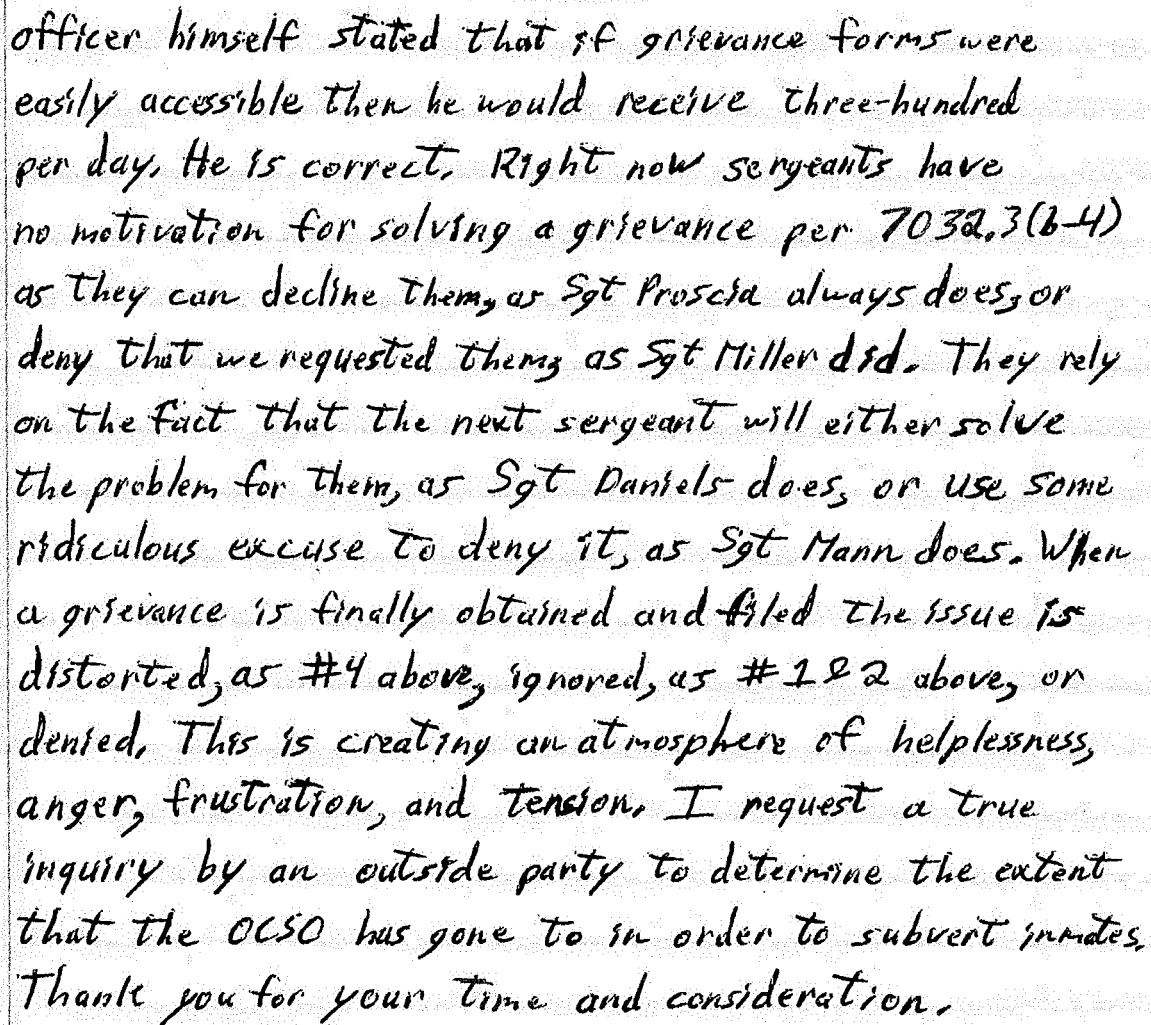 officer himself stated that if grievance forms were
easily accessible then he would receive three-hundred
per day. He is correct. Right now sergeants have
no motivation for solving a grievance per 7032.3(b-4)
as they can decline them, as Sgt Proscia always does, or
deny that we requested them, as Sgt Miller did. They rely
on the fact that the next sergeant will either solve
the problem for them, as Sgt Daniels does, or use some
ridiculous excuse to deny it, as Sgt Mann does. When
a grievance is finally obtained and filed the issue is
distorted, as #4 above, ignored, as #1&2 above, or
denied. This is creating an atmosphere of helplessness,
anger, frustration, and tension. I request a true
inquiry by an outside party to determine the extent
that the OCSO has gone to in order to subvert inmates.
Thank you for your time and consideration.